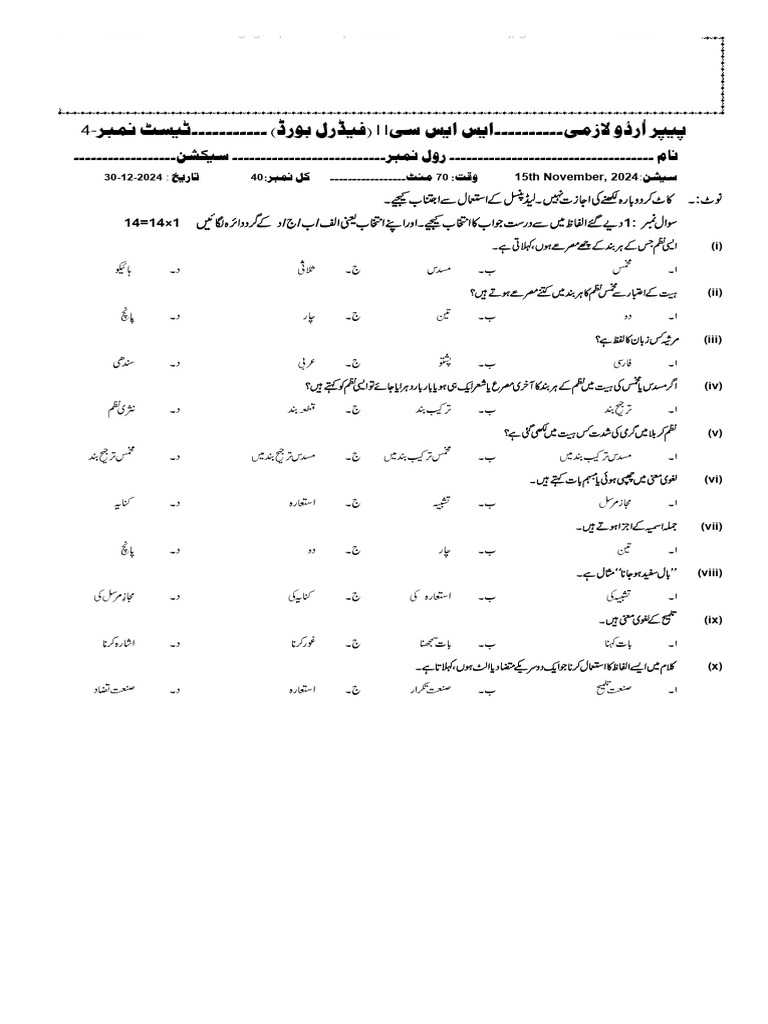 پیپر اُردُو لازمی-----------ایس ایس سی II (فیڈرل بورڈ) -----------ٹیسٹ نمبر-4
نام ------------------------------------ رول نمبر--------------------------- سیکشن------------------
سیشن:15th November, 2024 وقت: 70 منٹ------------------ کل نمبر:40 تاریخ : 30-12-2024
نوٹ:۔ کاٹ کر دوبارہ لکھنے کی اجازت نہیں۔ لیڈ پنسل کے استعمال سے اجتناب کیجیے۔
سوال نمبر 1: دیے گئے الفاظ میں سے درست جواب کا انتخاب کیجیے۔ اور اپنے انتخاب یعنی الف/ب/ج/د کے گرد دائرہ لگائیں 14=14×1
(i) ایسی نظم جس کے ہر بند کے چھے مصرعے ہوں، کہلاتی ہے۔
ا۔ مخمس ب۔ مسدس ج۔ ثلاثی د۔ ہائیکو
(ii) ہیت کے اعتبار سے مخمس نظم کا ہر بند میں کتنے مصرعے ہوتے ہیں؟
ا۔ دو ب۔ تین ج۔ چار د۔ پانچ
(iii) مرثیہ کس زبان کا لفظ ہے؟
ا۔ فارسی ب۔ پشتو ج۔ عربی د۔ سندھی
(iv) اگر مسدس یا مخمس کی ہیت میں نظم کے ہر بند کا آخری مصرع یا شعر ایک ہی ہو یا بار بار دہرایا جائے تو ایسی نظم کو کہتے ہیں؟
ا۔ ترجیح بند ب۔ ترکیب بند ج۔ قطعہ بند د۔ نثری نظم
(v) نظم کربلا میں گرمی کی شدت کس ہیت میں لکھی گئی ہے؟
ا۔ مسدس ترکیب بند میں ب۔ مخمس ترکیب بند میں ج۔ مسدس ترجیح بند میں د۔ مخمس ترجیح بند
(vi) لغوی معنی میں چھپی ہوئی یا مبہم بات کہتے ہیں۔
ا۔ مجاز مرسل ب۔ تشبیہ ج۔ استعارہ د۔ کنایہ
(vii) جملہ اسمیہ کے اجزا ہوتے ہیں۔
ا۔ تین ب۔ چار ج۔ دو د۔ پانچ
(viii) ”بال سفید ہو جانا“ مثال ہے۔
ا۔ تشبیہ کی ب۔ استعارہ کی ج۔ کنایہ کی د۔ مجاز مرسل کی
(ix) تلمیح کے لغوی معنی ہیں۔
ا۔ بات کہنا ب۔ بات سمجھنا ج۔ غور کرنا د۔ اشارہ کرنا
(x) کلام میں ایسے الفاظ کا استعمال کرنا جو ایک دوسرے کے متضاد یا الٹ ہوں، کہلاتا ہے۔
ا۔ صنعت تلمیح ب۔ صنعت تکرار ج۔ استعارہ د۔ صنعت تضاد